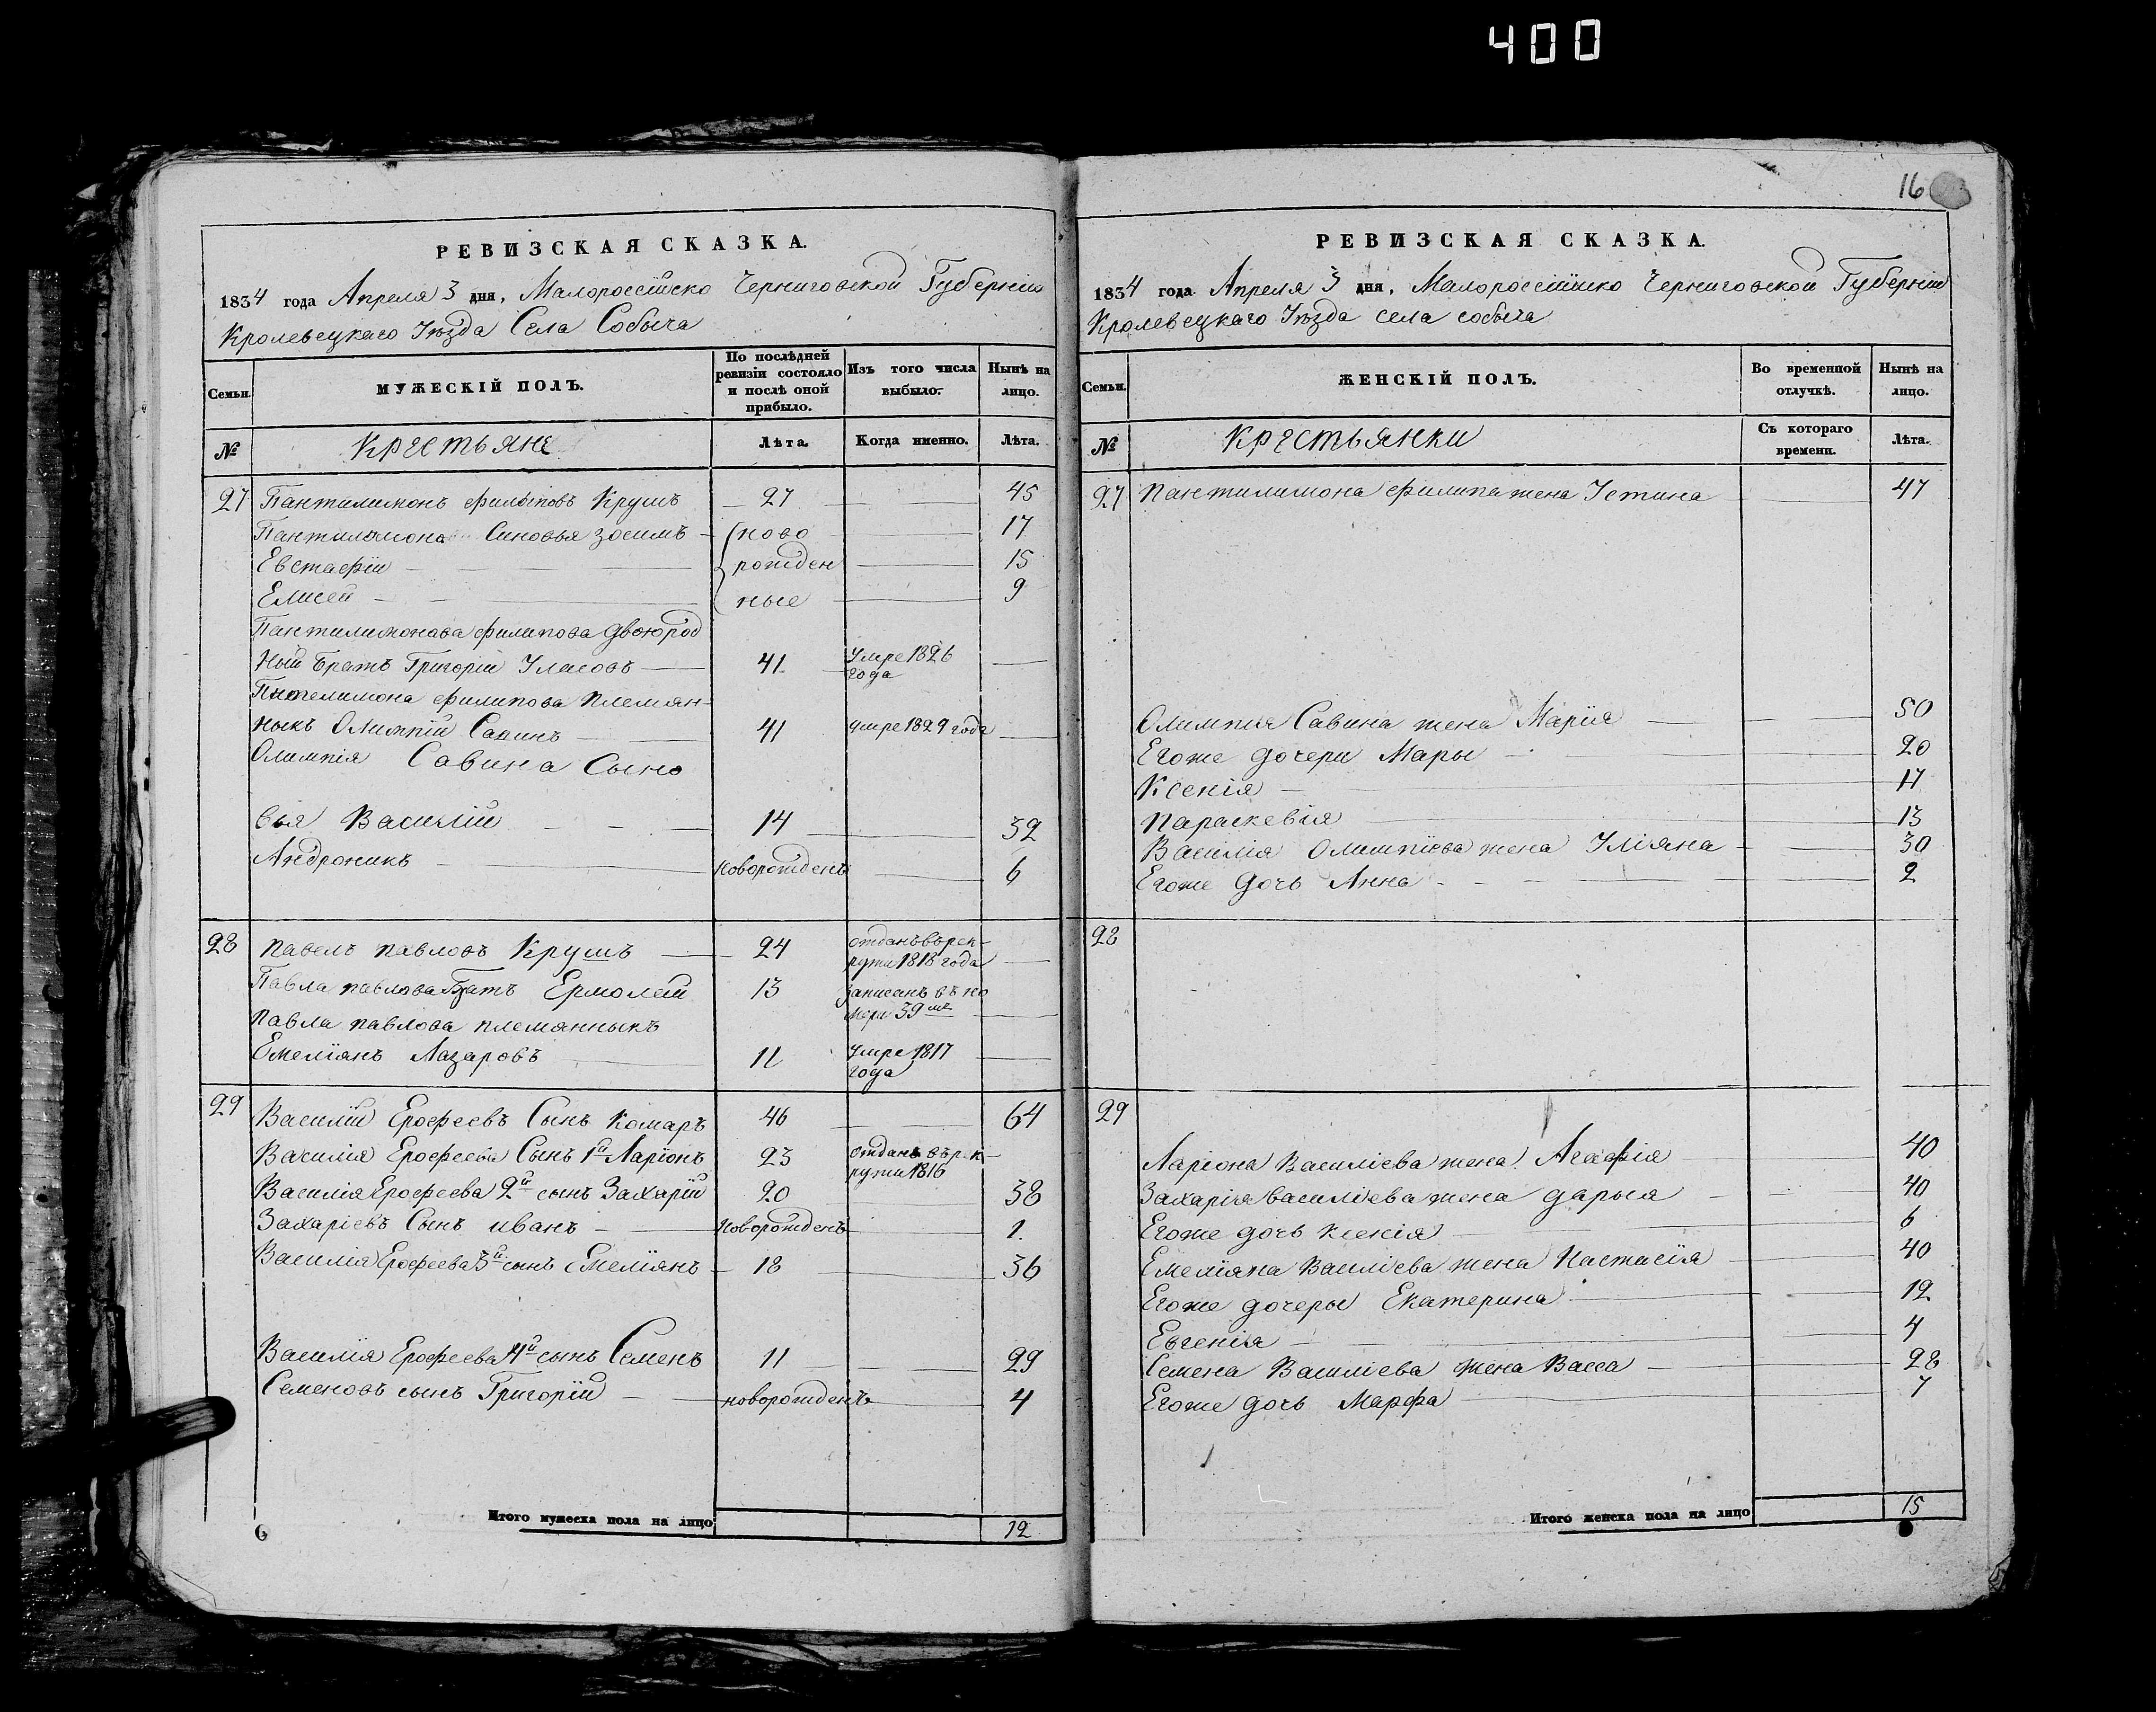 400
РЕВИЗСКАЯ СКАЗКА.
1834 года Апреля 3 дня, Малороссійско Черниговской Губерніи
Кролевецкаго Уѣзда Села Собыча
Семьи.
МУЖЕСКІЙ ПОЛЪ.
По послѣдней ревизіи состояло и послѣ оной прибыло.
Изъ того числа выбыло.
Нынѣ на лицо.
№
Крестьяне
Лѣта.
Когда именно.
Лѣта.
27 Пантилимонъ Филиповъ Крушъ 27 45
Пантилимона Синовья Зосимъ ново 17
Евстафій рожден 15
Елисей ные 9
Пантилимонава Филипова двоюрод
ный братъ Григорій Уласовъ 41 Умре 1826 года
Пнтелимона Филипова племян-
ныкъ Олимпій Савинъ 41 умре 1829 года
Олимпія Савина Сыно
вья Василій 14 32
Андроникъ новорожденъ 6
28 Павелъ Павловъ Крушъ 24 отданъ въ рек-
рути 1818 года
Павла Павлова Братъ Ермолей 13 записанъ въ но
мери 39 мъ
Павла Павлова племянныкъ
Емеліянъ Лазаровъ 11 Умре 1817
года
29 Василій Ерофеевъ Сынъ Комаръ 46 64
Василія Ерофеева Сынъ 1й Ларіонъ 23 отданъ въ рек-
рути 1816
Василія Ерофеева 2й сынъ Захарій 20 38
Захаріевъ Сынъ иванъ новорожденъ 1.
Василія Ерофеева 3й сынъ Емеліянъ 18 36
Василія Ерофеева 4й сынъ Семенъ 11 29
Семеновъ сынъ Григорій новорожденъ 4
Итого мужеска пола на лицо 12
16
РЕВИЗСКАЯ СКАЗКА.
1834 года Апреля 3 дня, Малороссійско Черниговской Губерніи
Кролевецкаго Уѣзда села собыча
Семьи.
ЖЕНСКІЙ ПОЛЪ.
Во временной отлучкѣ.
Нынѣ на лицо.
№
Крестьянки
Съ котораго времени.
Лѣта.
27 Пантилимона Филипа жена Устина 47
Олимпія Савина жена Марія 50
Егоже дочери Мары 20
Ксенія 17
Параскевія 13
Василія Олимпіева жена Уліяна 30
Егоже дочь Анна 2
28
29
Ларіона Василіева жена Агафія 40
Захарія василіева жена дарья 40
Егоже дочь ксенія 6
Емеліяна Василіева жена Настасія 40
Егоже дочеры Екатерина 12
Евгенія 4
Семена Василіева жена Васса 28
Егоже дочь Марфа 7
Итого женска пола на лицо 15